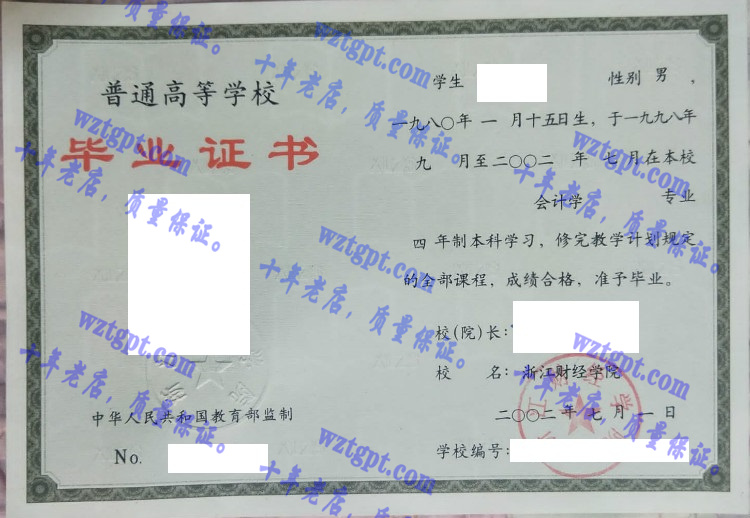 普通高等学校
毕业证书
中华人民共和国教育部监制
No.
学生 性别 男 ,
一九八〇年 一 月十五日生, 于一九九八年
九 月至二〇〇二 年 七 月在本校
会计学 专业
四 年制本科学习, 修完教学计划规定
的全部课程, 成绩合格, 准予毕业。
校(院)长:
校 名: 浙江财经学院
二〇〇二年 七 月 一 日
学校编号:
wztgpt.com
十年老店, 质量保证。
wztgpt.com
十年老店, 质量保证。
wztgpt.com
十年老店, 质量保证。
wztgpt.com
十年老店, 质量保证。
wztgpt.com
十年老店, 质量保证。
wztgpt.com
十年老店, 质量保证。
wztgpt.com
十年老店, 质量保证。
wztgpt.com